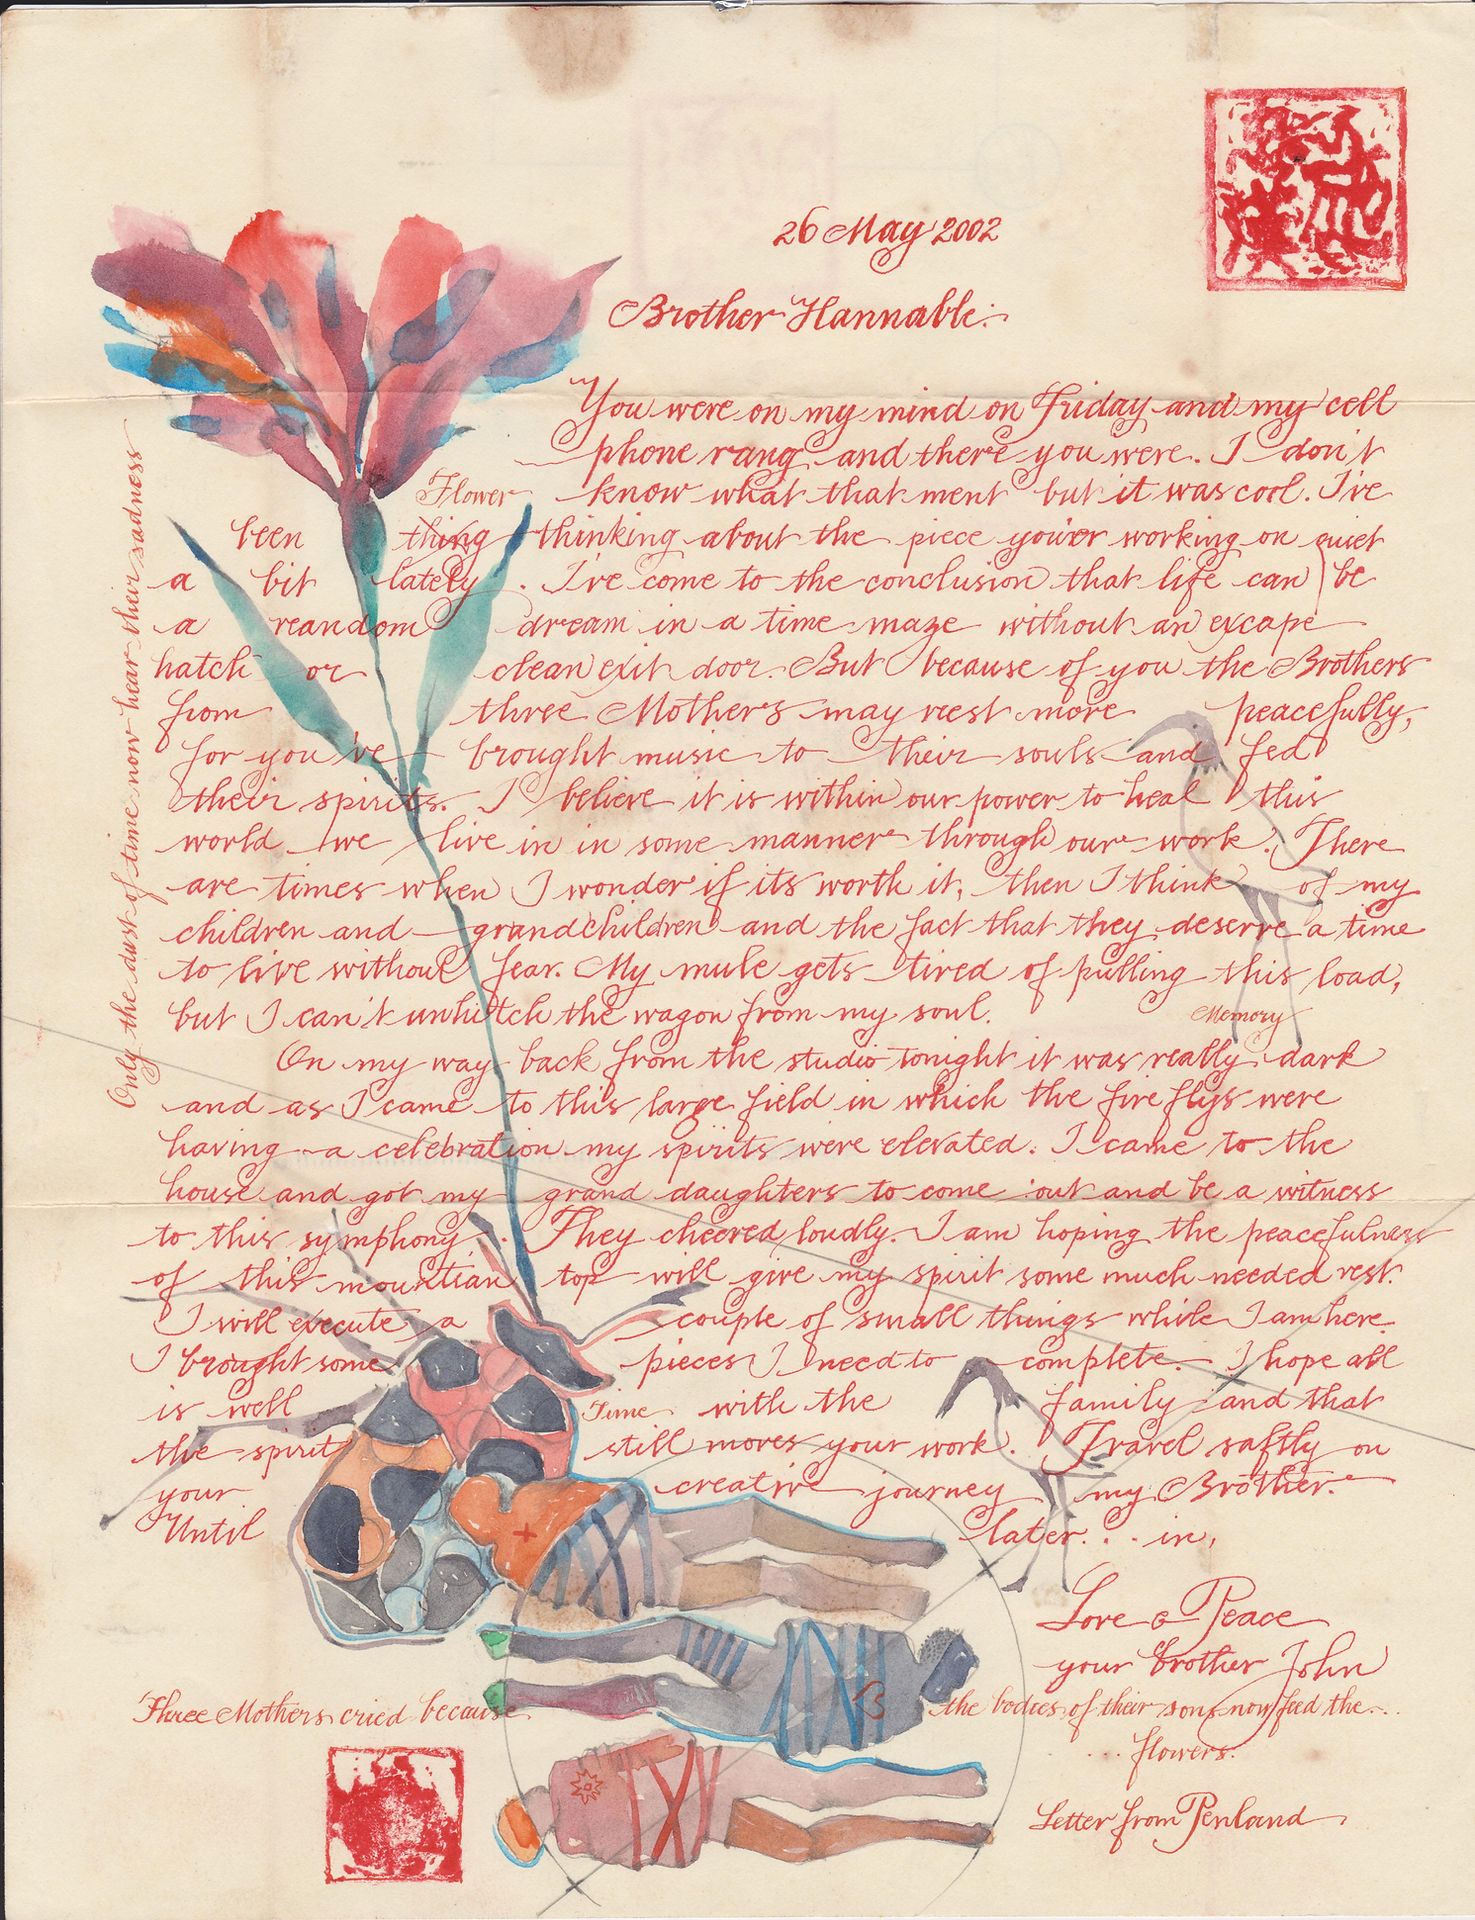 26 May 2002
Brother Hannable:
You were on my mind on Friday and my cell
phone rang and there you were. I don't
Flower
know what that ment but it was cool. I've
been thing thinking about the piece you'er working on quiet
a bit lately. I've come to the conclusion that life can be
a reandom dream in a time maze without an excape
hatch or clean exit door. But because of you the Brothers
from three Mothers may rest more peacefully,
for you've brought music to their souls and fed
their spirits. I believe it is within our power to heal this
world we live in in some manner through our work. There
are times when I wonder if its worth it, then I think of my
children and grandchildren and the fact that they deserve a time
to live without fear. My mule gets tired of pulling this load,
but I can't unhitch the wagon from my soul.
Memory
On my way back from the studio tonight it was really dark
and as I came to this large field in which the fire flys were
having a celebration my spirits were elevated. I came to the
house and got my grand daughters to come out and be a witness
to this symphony. They cheered loudly. I am hoping the peacefulness
of this mountian top will give my spirit some much needed rest.
I will execute a couple of small things while I am here.
I brought some pieces I need to complete. I hope all
is well with the family and that
Time
the spirit still moves your work. Travel saftly on
your creative journey my Brother.
Until later... in,
Love & Peace
your brother John
Three Mothers cried because the bodies of their sons now feed the...
... flowers.
Letter from Penland
Only the dust of time now hear their sadness